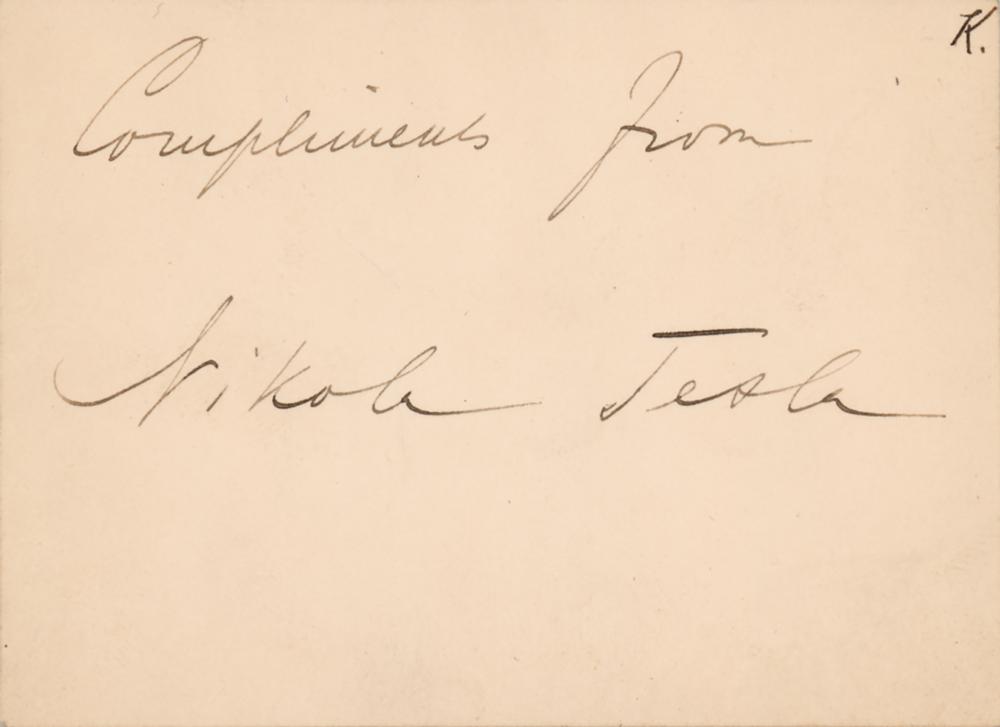 K.
Compliments from
Nikola Tesla